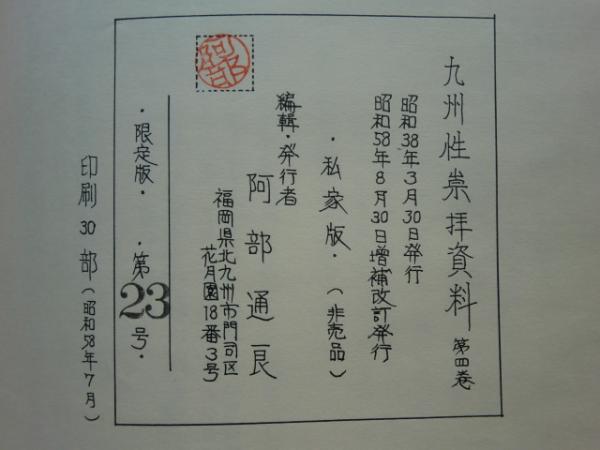 九州性崇拝資料 第四巻
昭和38年3月30日発行
昭和58年8月30日増補改訂発行
・私家版・(非売品)
編輯・発行者
阿部通良
福岡県北九州市門司区
花月園18番3号
阿部
・限定版・ ・第23号・
印刷30部(昭和58年7月)